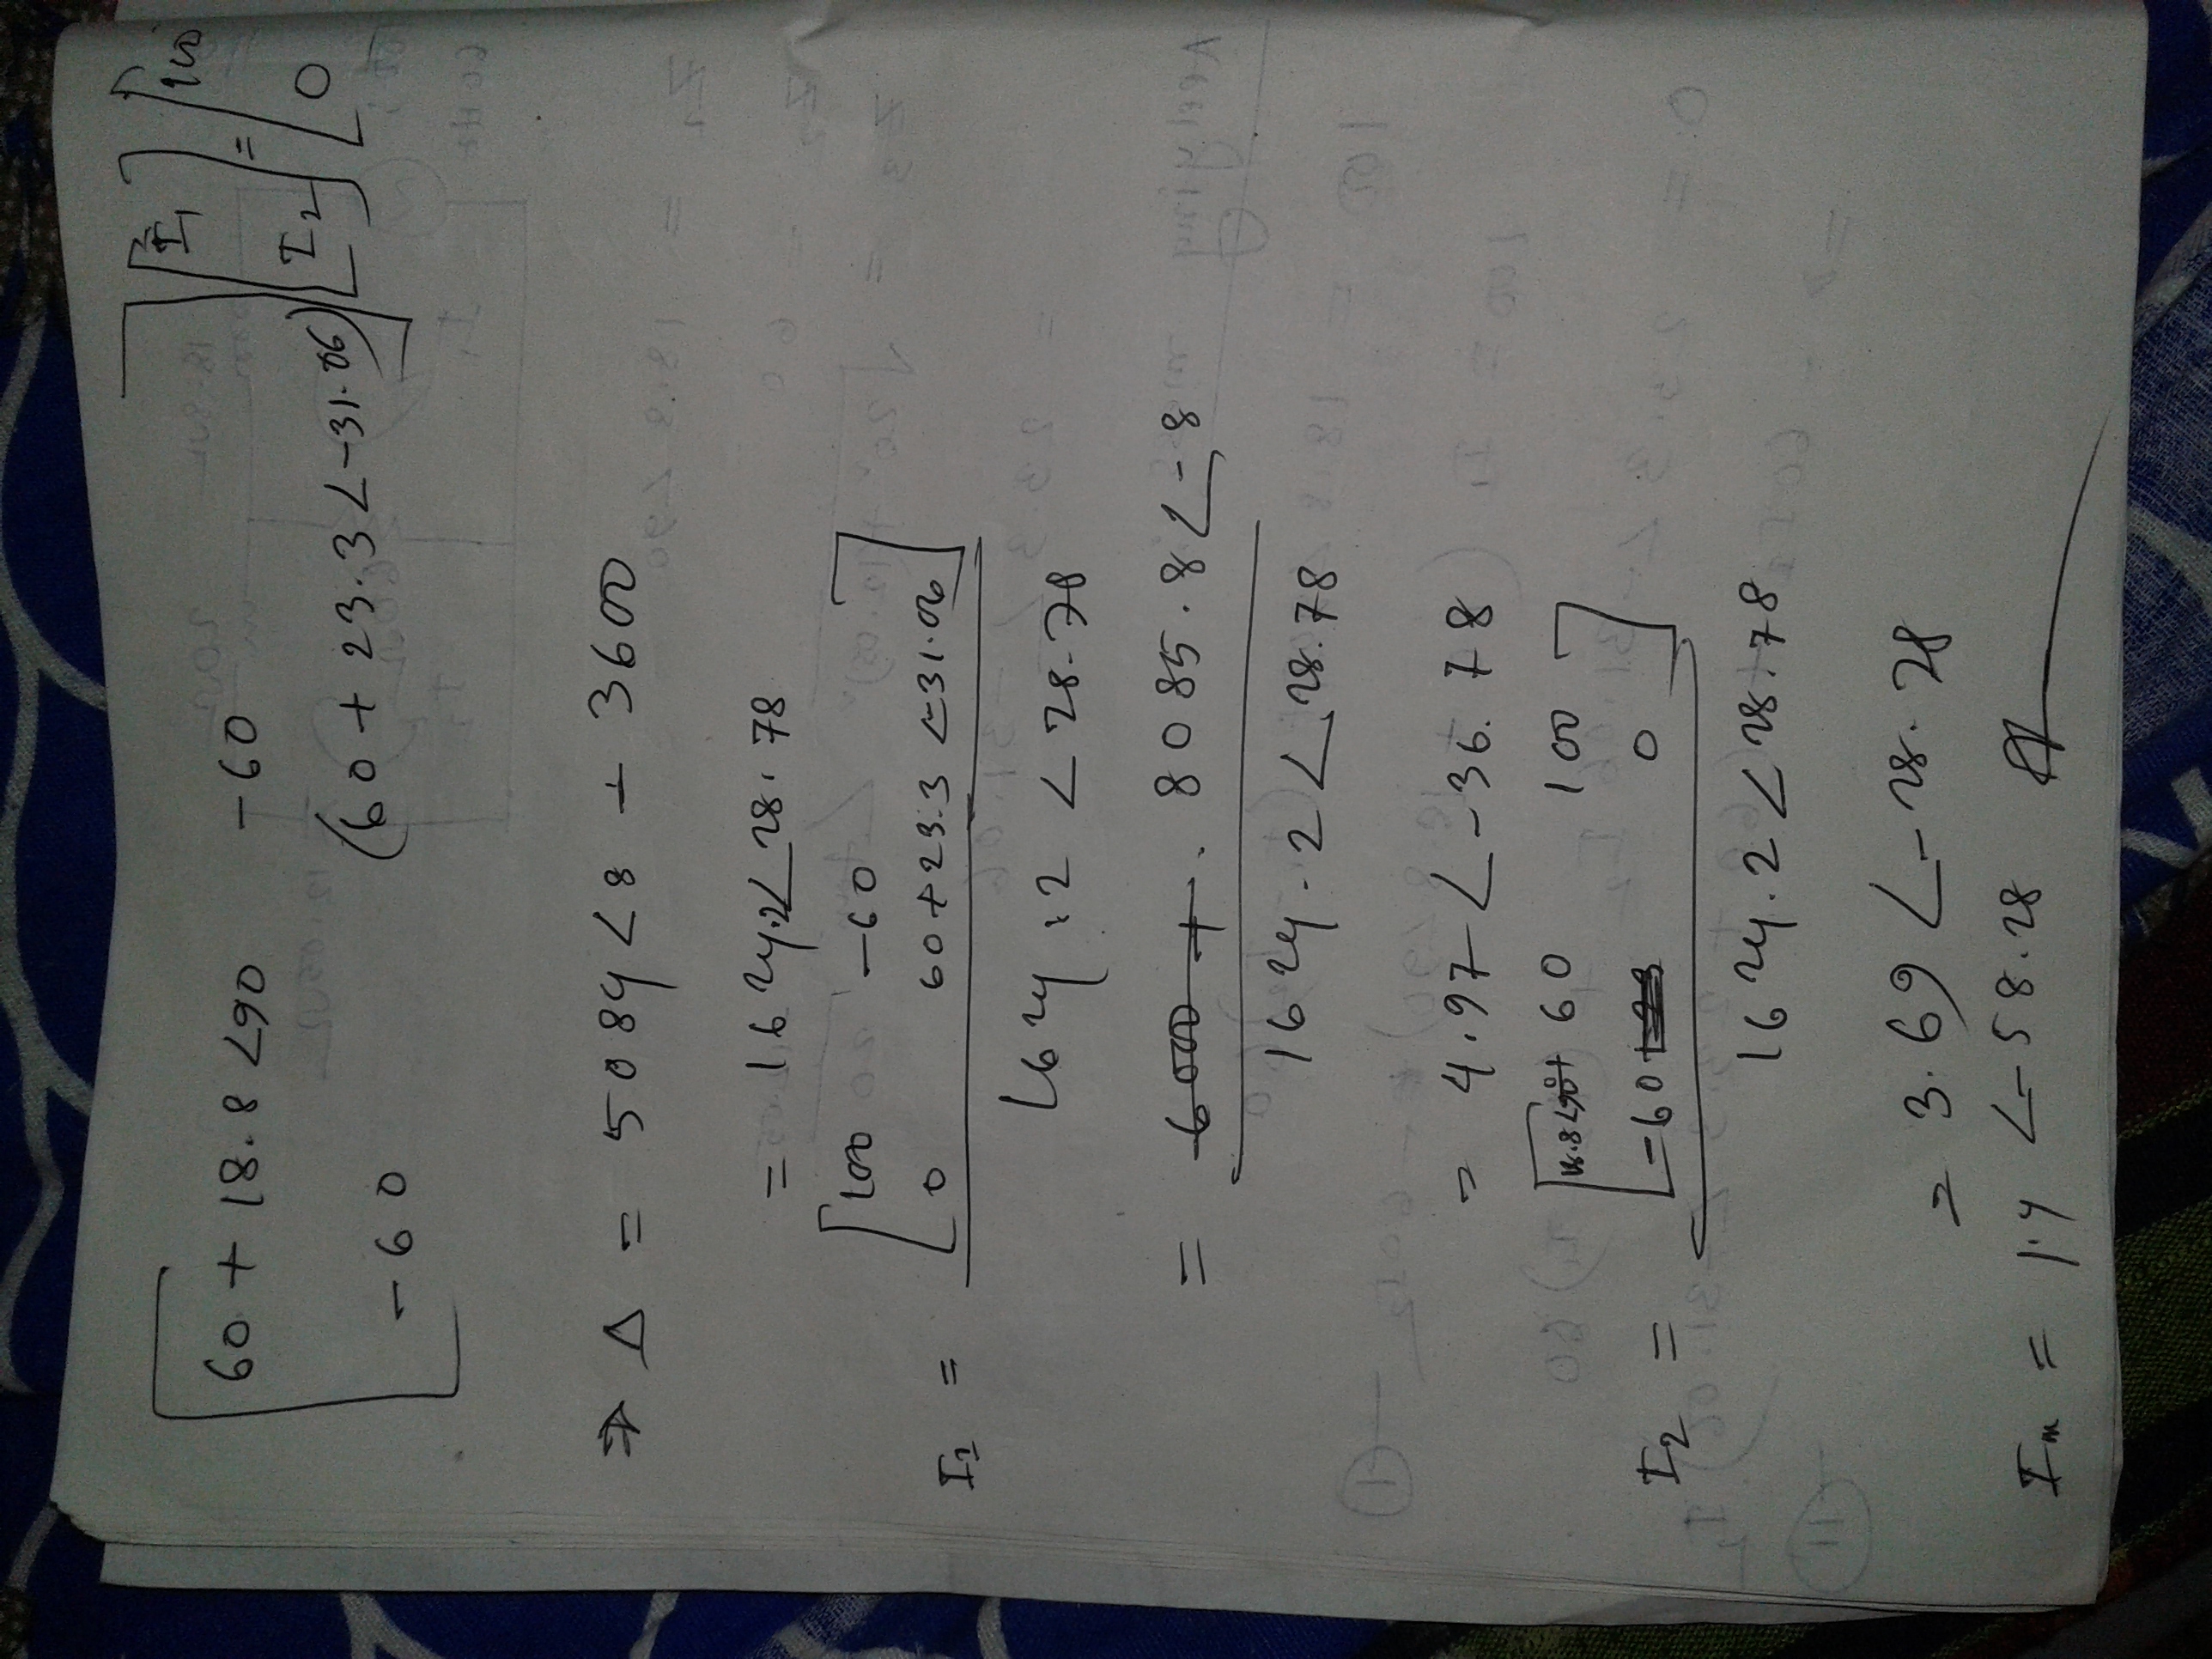 [ 60 + 18.8 ∠90 -60 ] [ I₁ ] = [ 100
[ -60 (60 + 23.3 ∠-31.06) ] [ I₂ ] [ 0
⇒ Δ = 5084 ∠8 - 3600
= 1624.2 ∠28.78
[ 100 -60 ]
I₁ = [ 0 60+23.3 ∠-31.06 ]
1624.2 ∠28.78
= 8085.8 ∠-8
1624.2 ∠28.78
= 4.97 ∠-36.78
[ 18.8∠90°+ 60 100 ]
I₂ = [ -60 0 ]
1624.2 ∠28.78
= 3.69 ∠-28.78
Im = 1.4 ∠-58.28 A